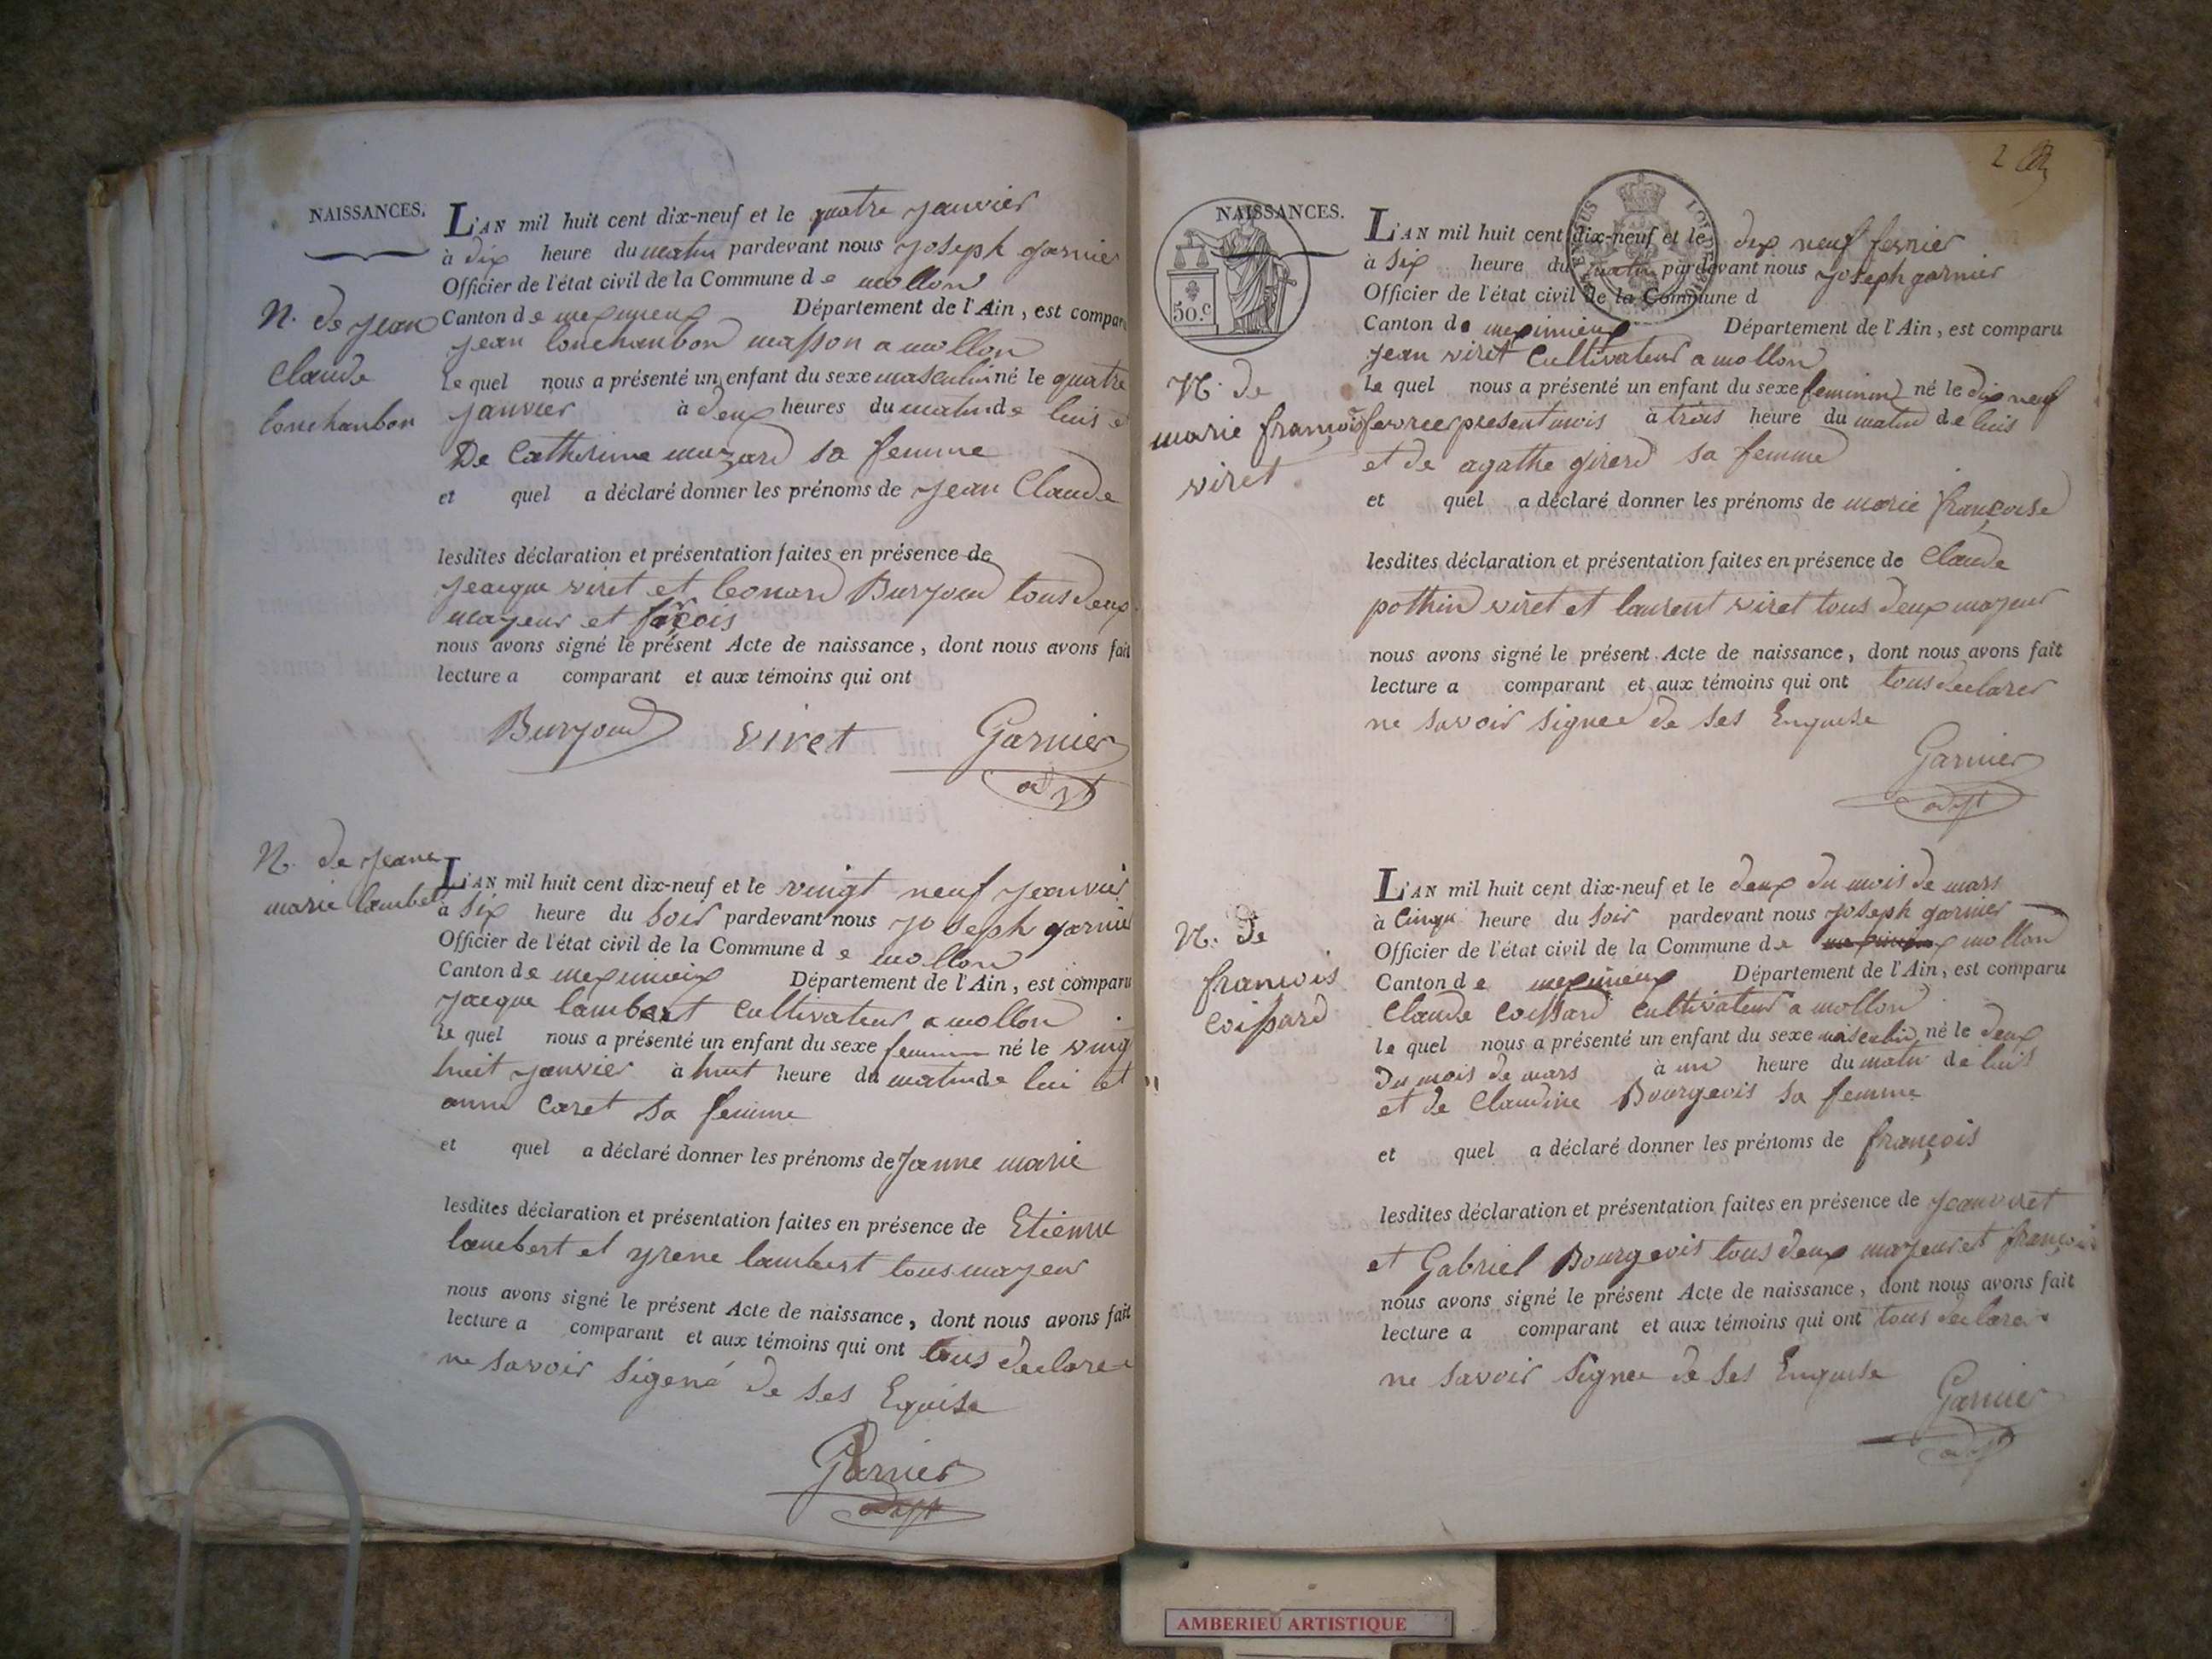 NAISSANCES.
L'AN mil huit cent dix-neuf et le quatre janvier
à dix heure du matin pardevant nous joseph garnier
Officier de l'état civil de la Commune de mollon
Canton de meximieux Département de l'Ain, est comparu
jean Conchanbon masson a mollon
le quel nous a présenté un enfant du sexe masculin né le quatre
janvier à deux heures du matin de luis e
De Catherine mazard sa femme
et quel a déclaré donner les prénoms de jean Claude
lesdites déclaration et présentation faites en présence de
jacque viret et leonard Burjoud tous deux
majeur et
nous avons signé le présent Acte de naissance, dont nous avons fait
lecture a comparant et aux témoins qui ont
Burjoud viret Garnier
adjt
N. de jean
Claude
Conchanbon
N. de jeane
marie lambet
L'AN mil huit cent dix-neuf et le vingt neuf jeanvier
à six heure du soir pardevant nous joseph garnie
Officier de l'état civil de la Commune de mollon
Canton de meximieix Département de l'Ain, est comparu
jacque lambert cultivateur a mollon
le quel nous a présenté un enfant du sexe feminin né le vingt
huit janvier à huit heure du matin de lui et
anne caret sa femme
et quel a déclaré donner les prénoms de janne marie
lesdites déclaration et présentation faites en présence de Etienne
lambert et yrene lambert tous majeur
nous avons signé le présent Acte de naissance, dont nous avons fait
lecture a comparant et aux témoins qui ont tous declare
ne savoir sigené de ses Eqoise
Garnier
adjt
2
NAISSANCES.
50.c
L'AN mil huit cent dix-neuf et le dix neuf fevrier
à six heure du matin pardevant nous joseph garnier
Officier de l'état civil de la Commune d
Canton de meximieux Département de l'Ain, est comparu
jean viret Cultivateur a mollon
le quel nous a présenté un enfant du sexe feminin né le dix neuf
fevrier present mois à trois heure du matin de luis
et de agathe girerd sa femme
et quel a déclaré donner les prénoms de marie françoise
lesdites déclaration et présentation faites en présence de Claude
pothin viret et laurent viret tous deux majeur
nous avons signé le présent Acte de naissance, dont nous avons fait
lecture a comparant et aux témoins qui ont tous declarer
ne savoir signee de ses Enquise
Garnier
adjt
N. de
marie françois
viret
N. de
francois
Coissard
L'AN mil huit cent dix-neuf et le deux du mois de mars
à Cinqu heure du soir pardevant nous joseph garnier
Officier de l'état civil de la Commune de mollon
Canton de meximieux Département de l'Ain, est comparu
Claude Coissard cultivateur a mollon
le quel nous a présenté un enfant du sexe masculin né le deux
du mois de mars à une heure du matin de luis
et de Claudine Bourgeois sa femme
et quel a déclaré donner les prénoms de françois
lesdites déclaration et présentation faites en présence de jean viret
et Gabriel Bourgeois tous deux majeur et françois
nous avons signé le présent Acte de naissance, dont nous avons fait
lecture a comparant et aux témoins qui ont tous declarer
ne savoir signee de ses Enquise
Garnier
adjt
AMBERIEU ARTISTIQUE